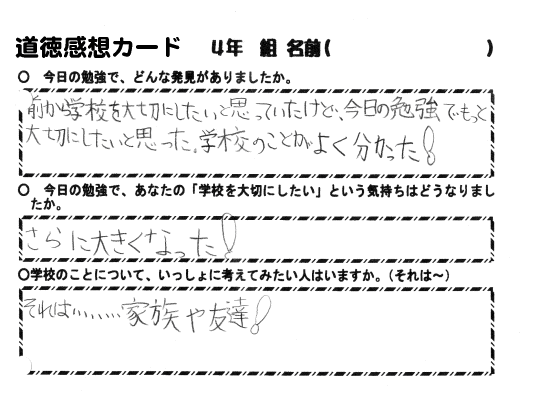 道徳感想カード　4年　組 名前(　　　　　)
○　今日の勉強で、どんな発見がありましたか。
前から学校を大切にしたいと思っていたけど、今日の勉強でもっと
大切にしたいと思った。学校のことがよく分かった!
○　今日の勉強で、あなたの「学校を大切にしたい」という気持ちはどうなりまし
たか。
さらに大きくなった!
○学校のことについて、いっしょに考えてみたい人はいますか。（それは～）
それは、、、、、、家族や友達!